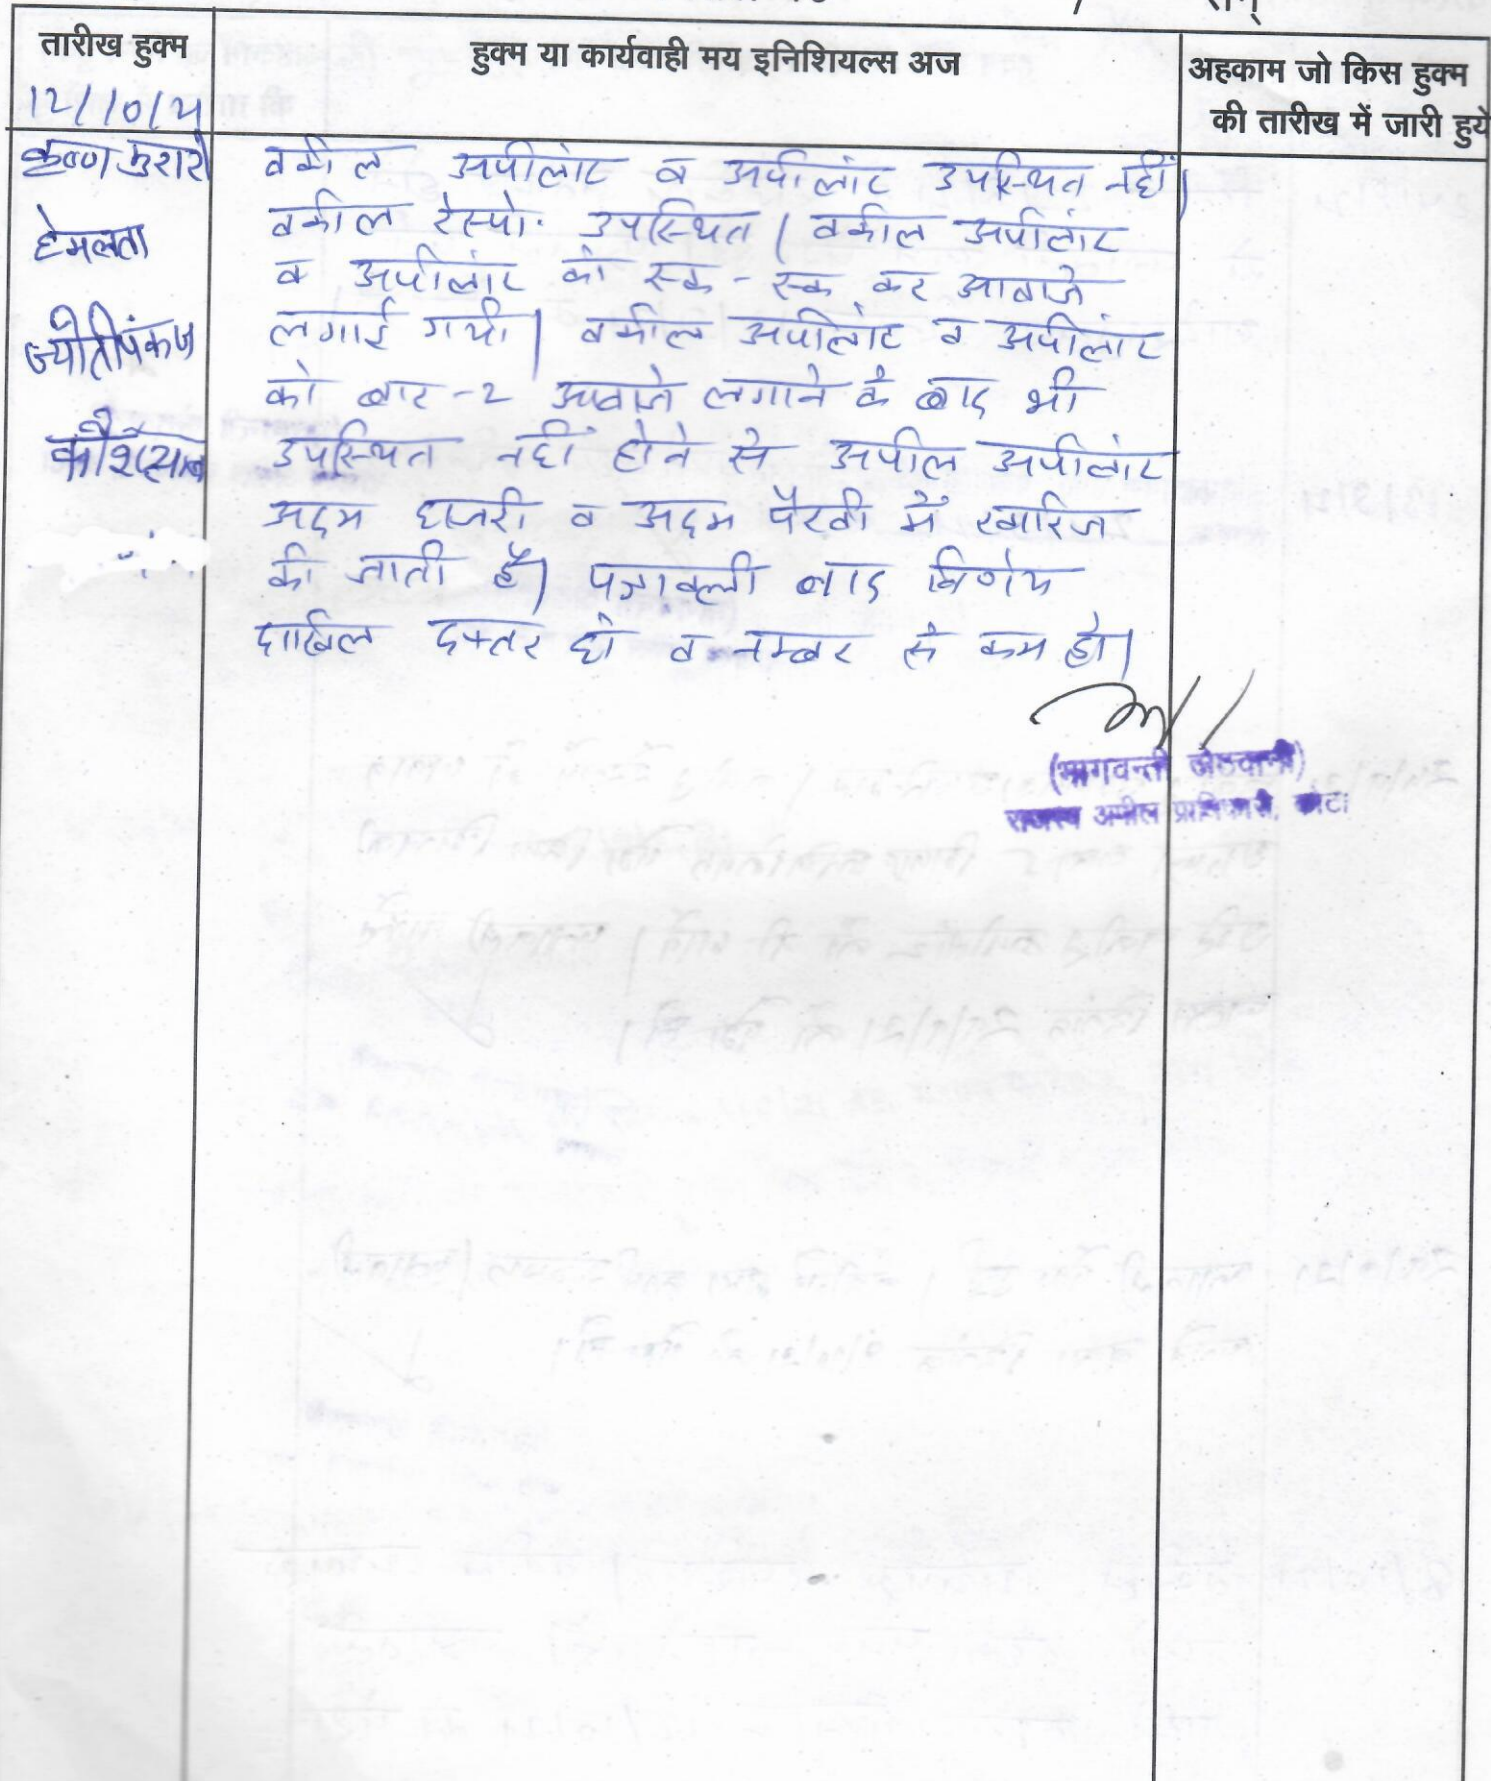 तारीख हुक्म
हुक्म या कार्यवाही मय इनिशियल्स अज
अहकाम जो किस हुक्म
की तारीख में जारी हुये
12/10/21
कृष्ण मुरारी
हेमलता
ज्योतीपंकज
वकील अपीलांट व अपीलांट उपस्थित नहीं।
वकील रेस्पो. उपस्थित। वकील अपीलांट
व अपीलांट को एक-एक कर आवाजे
लगाई गयी। वकील अपीलांट व अपीलांट
को बार-2 आवाजे लगाने के बाद भी
उपस्थित नहीं होने से अपील अपीलांट
अदम हाजरी व अदम पैरवी में खारिज
की जाती है। पत्रावली बाद निर्णय
दाखिल दफ्तर हो व नम्बर से कम हो।
(भागवन्ती जेठवानी)
राजस्व अपील प्राधिकारी, कोटा